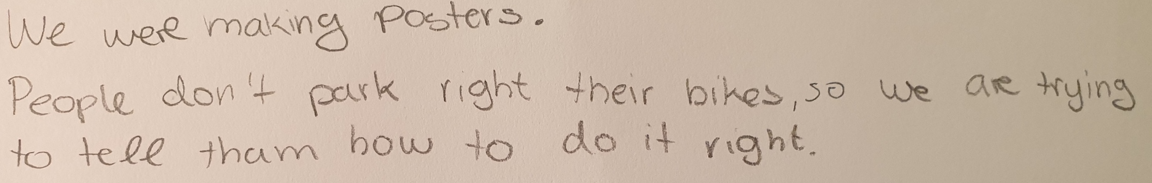 We were making posters.
People don't park right their bikes, so we are trying
to tell tham how to do it right.